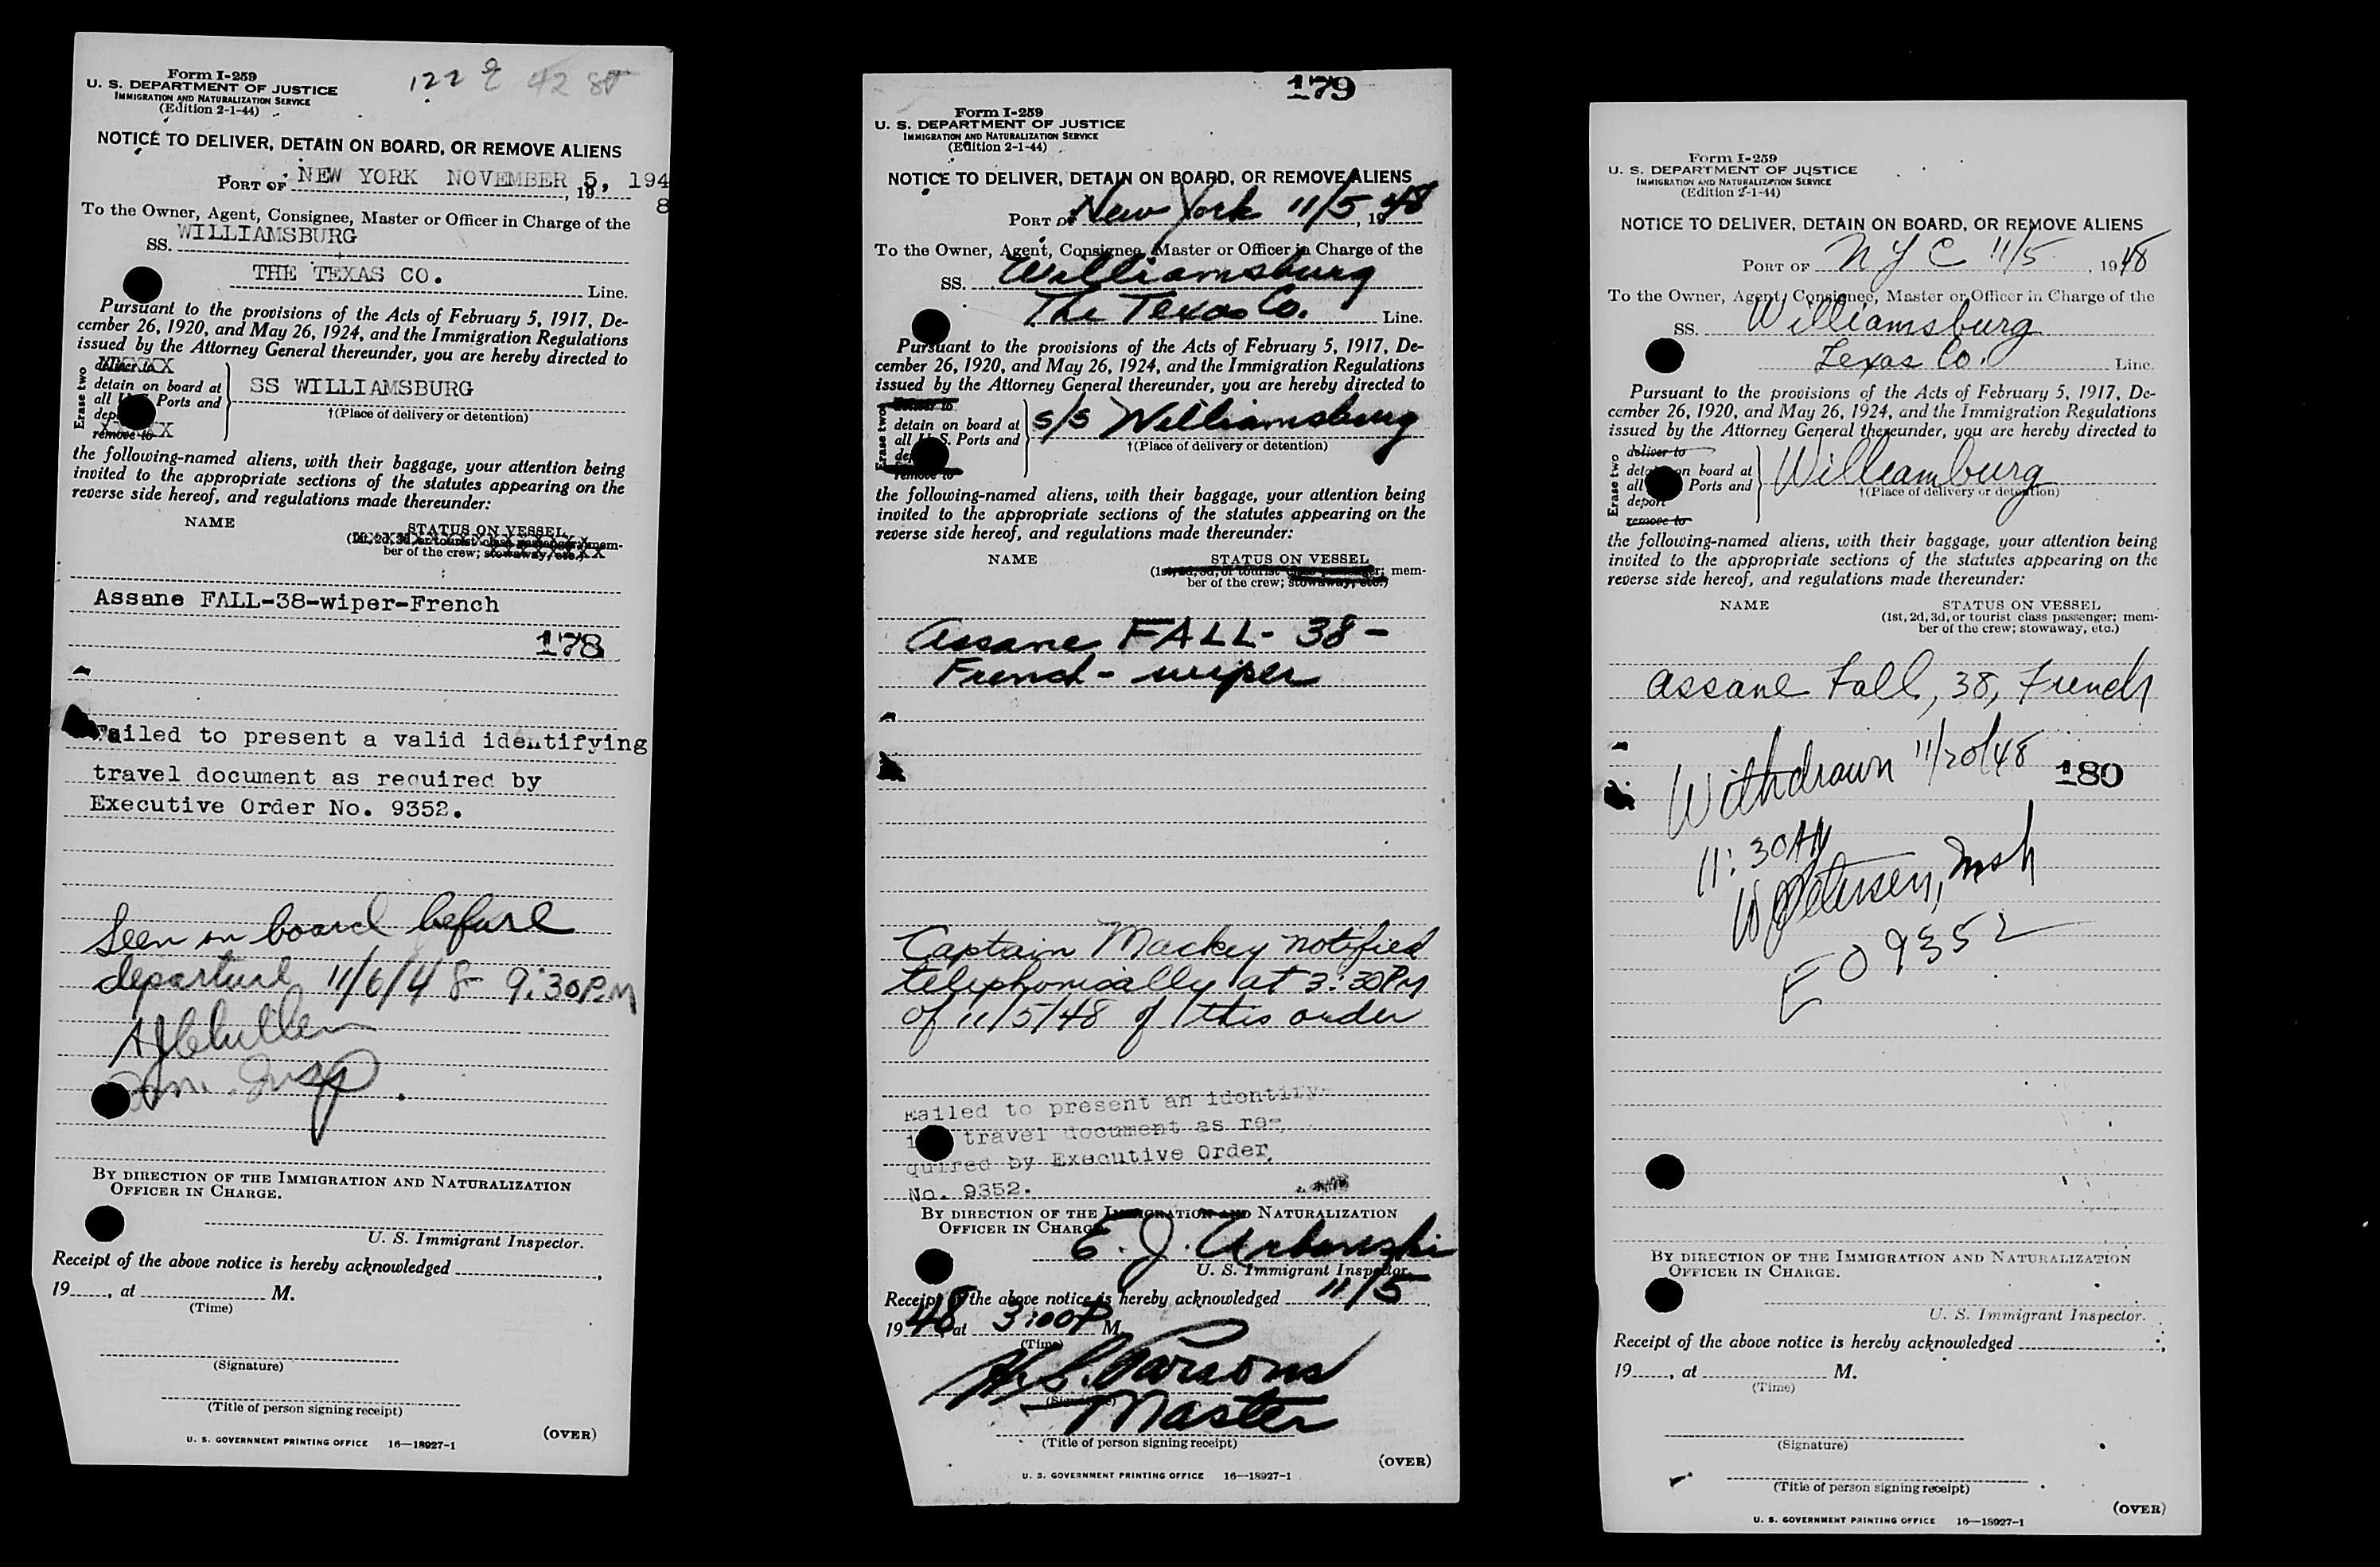 122 E 42 St
Form I-259
U. S. DEPARTMENT OF JUSTICE
IMMIGRATION AND NATURALIZATION SERVICE
(Edition 2-1-44)
NOTICE TO DELIVER, DETAIN ON BOARD, OR REMOVE ALIENS
PORT OF NEW YORK NOVEMBER 5, 194
, 19
8
To the Owner, Agent, Consignee, Master or Officer in Charge of the
SS. WILLIAMSBURG
THE TEXAS CO. Line.
Pursuant to the provisions of the Acts of February 5, 1917, De-
cember 26, 1920, and May 26, 1924, and the Immigration Regulations
issued by the Attorney General thereunder, you are hereby directed to
Erase two
deliver to
detain on board at
all Ports and SS WILLIAMSBURG
†(Place of delivery or detention)
remove to
the following-named aliens, with their baggage, your attention being
invited to the appropriate sections of the statutes appearing on the
reverse side hereof, and regulations made thereunder:
NAME STATUS ON VESSEL
(1st, 2d, 3d, or tourist class passenger; mem-
ber of the crew; stowaway, etc.)
Assane FALL-38-wiper-French
178
Failed to present a valid identifying
travel document as required by
Executive Order No. 9352.
Seen on board before
departure 11/6/48 9:30 P.M
Imm. Insp.
BY DIRECTION OF THE IMMIGRATION AND NATURALIZATION
OFFICER IN CHARGE.
U. S. Immigrant Inspector.
Receipt of the above notice is hereby acknowledged ,
19 , at M.
(Time)
(Signature)
(Title of person signing receipt)
(OVER)
U. S. GOVERNMENT PRINTING OFFICE 16—18927-1
179
Form I-259
U. S. DEPARTMENT OF JUSTICE
IMMIGRATION AND NATURALIZATION SERVICE
(Edition 2-1-44)
NOTICE TO DELIVER, DETAIN ON BOARD, OR REMOVE ALIENS
PORT OF New York 11/5, 1948
To the Owner, Agent, Consignee, Master or Officer in Charge of the
SS. Williamsburg
The Texas Co. Line.
Pursuant to the provisions of the Acts of February 5, 1917, De-
cember 26, 1920, and May 26, 1924, and the Immigration Regulations
issued by the Attorney General thereunder, you are hereby directed to
Erase two
deliver to
detain on board at
all U. S. Ports and S/S Williamsburg
†(Place of delivery or detention)
remove to
the following-named aliens, with their baggage, your attention being
invited to the appropriate sections of the statutes appearing on the
reverse side hereof, and regulations made thereunder:
NAME STATUS ON VESSEL
(1st, 2d, 3d, or tourist class passenger; mem-
ber of the crew; stowaway, etc.)
Assane FALL- 38-
French - wiper
Captain Mackey notified
telephonically at 3:30PM
of 11/5/48 of this order
Failed to present an identify-
travel document as re-
quired by Executive Order
No. 9352.
BY DIRECTION OF THE IMMIGRATION AND NATURALIZATION
OFFICER IN CHARGE.
E. J. Urbanski
U. S. Immigrant Inspector.
Receipt of the above notice is hereby acknowledged 11/5,
1948, at 3:00 P M.
(Time)
H. L. Parsons
(Signature)
Master
(Title of person signing receipt)
(OVER)
U. S. GOVERNMENT PRINTING OFFICE 16—18927-1
Form I-259
U. S. DEPARTMENT OF JUSTICE
IMMIGRATION AND NATURALIZATION SERVICE
(Edition 2-1-44)
NOTICE TO DELIVER, DETAIN ON BOARD, OR REMOVE ALIENS
PORT OF N Y C 11/5, 1948
To the Owner, Agent, Consignee, Master or Officer in Charge of the
SS. Williamsburg
Texas Co. Line.
Pursuant to the provisions of the Acts of February 5, 1917, De-
cember 26, 1920, and May 26, 1924, and the Immigration Regulations
issued by the Attorney General thereunder, you are hereby directed to
Erase two
deliver to
detain on board at
all Ports and Williamburg
deport †(Place of delivery or detention)
remove to
the following-named aliens, with their baggage, your attention being
invited to the appropriate sections of the statutes appearing on the
reverse side hereof, and regulations made thereunder:
NAME STATUS ON VESSEL
(1st, 2d, 3d, or tourist class passenger; mem-
ber of the crew; stowaway, etc.)
Assane Fall, 38, French
Withdrawn 11/20/48 180
11:30AM
Petersen,
EO 9352
BY DIRECTION OF THE IMMIGRATION AND NATURALIZATION
OFFICER IN CHARGE.
U. S. Immigrant Inspector.
Receipt of the above notice is hereby acknowledged ,
19 , at M.
(Time)
(Signature)
(Title of person signing receipt)
(OVER)
U. S. GOVERNMENT PRINTING OFFICE 16—18927-1